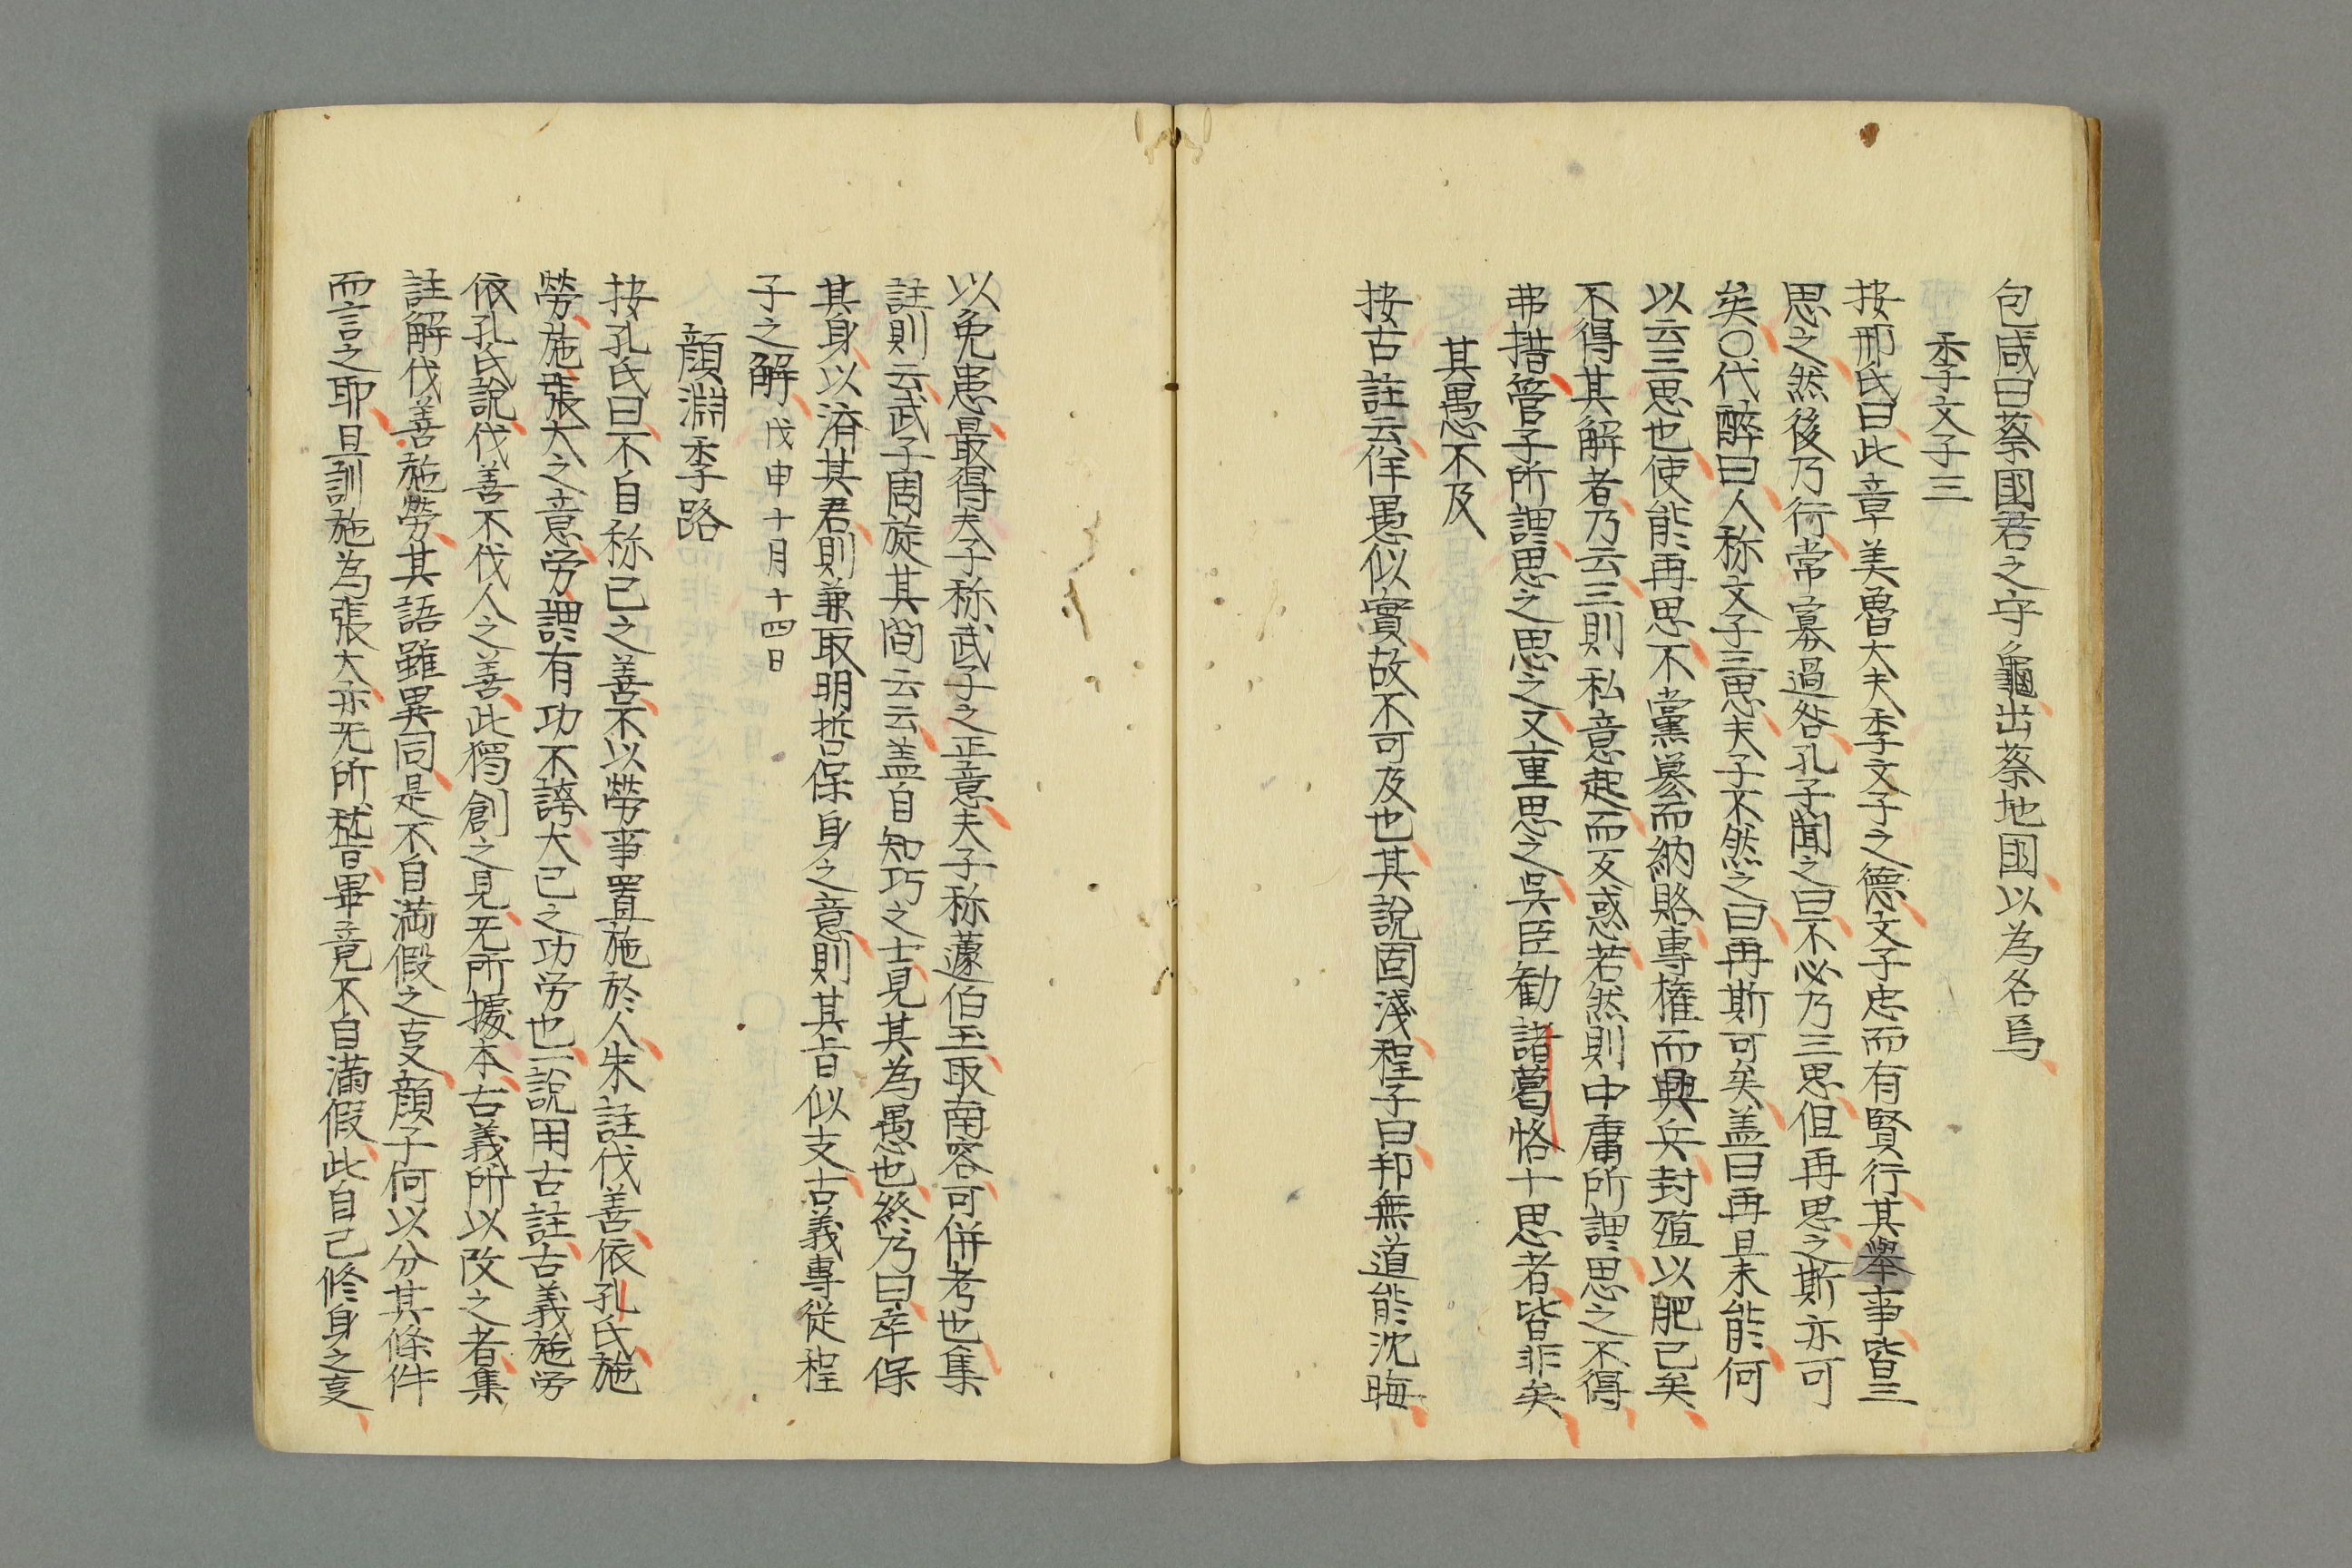 包咸曰蔡國君之守龜出蔡地因以為名焉
季文子三
按邢氏曰此章美魯大夫季文子之德文子忠而有賢行其舉事皆三
思之然後乃行常寡過咎孔子聞之曰不必乃三思但再思之斯亦可
矣〇代醉曰人称文子三思夫子不然之曰再斯可矣盖曰再且未能何
以云三思也使能再思不黨篡而納賂專權而興兵封殖以肥己矣
不得其解者乃云三則私意起而反惑若然則中庸所謂思之不得
弗措管子所謂思之思之又重思之吳臣勧諸葛恪十思者皆非矣
其愚不及
按古註云佯愚似實故不可及也其説固淺程子曰邦無道能沈晦
以免患最得夫子称武子之正意夫子称蘧伯玉取南容可併考也集
註則云武子周旋其間云云盖自知巧之士見其為愚也終乃曰卒保
其身以済其君則兼取明哲保身之意則其旨似支古義專従程
子之解戊申十月十四日
顔淵季路
按孔氏曰不自称己之善不以勞事置施於人朱註伐善依孔氏施
勞施張大之意労謂有功不誇大己之功労也一説用古註古義施労
依孔氏説伐善不伐人之善此獨創之見无所據本古義所以改之者集
註解伐善施勞其語雖異同是不自満假之叓顔子何以分其條件
而言之耶且訓施為張大亦无所稽畢竟不自滿假此自己修身之叓